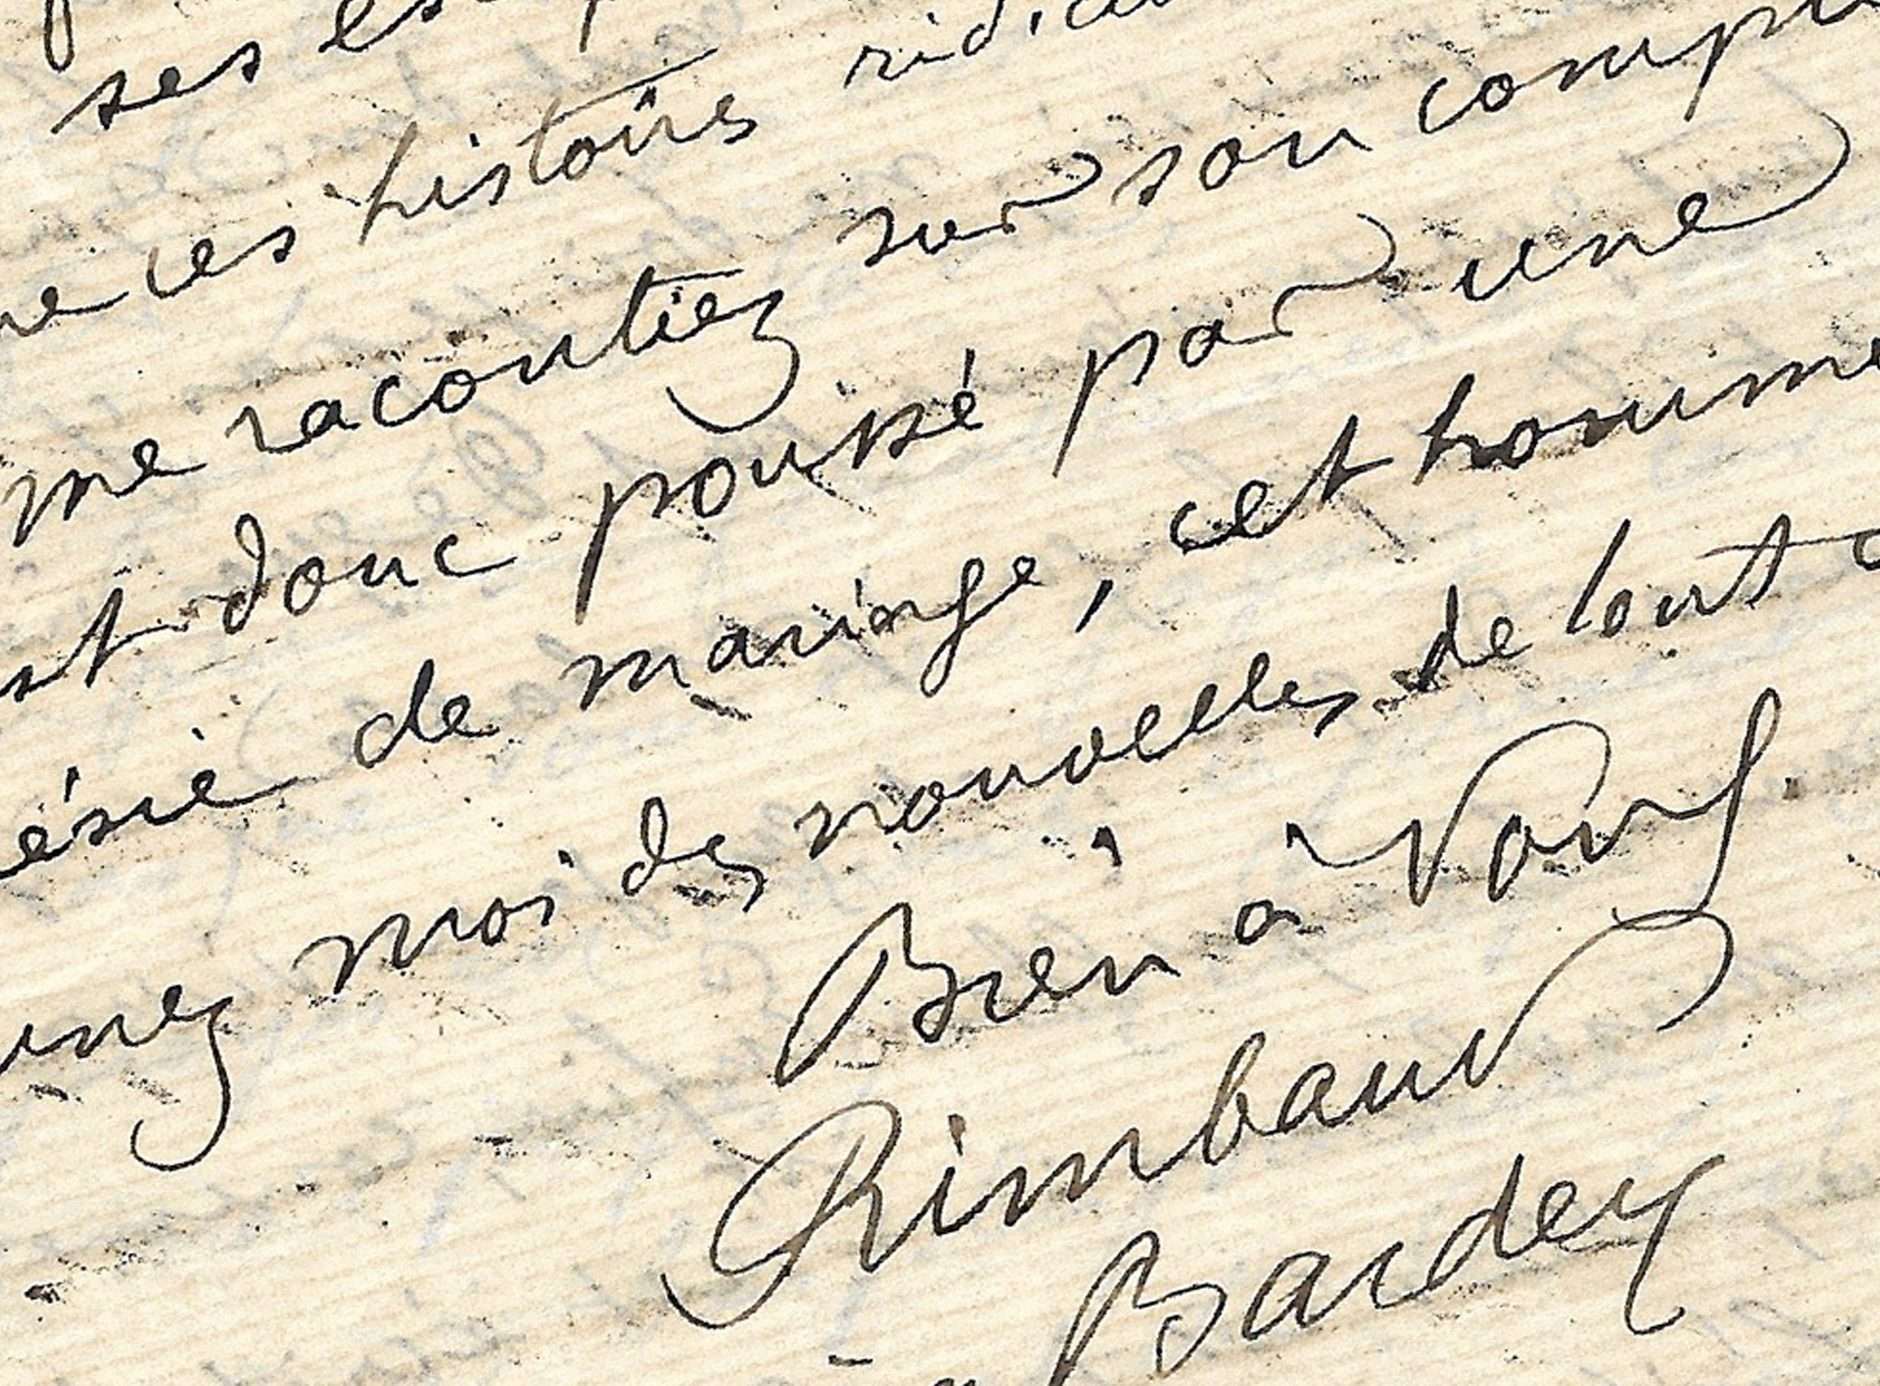 ses
ces histoires
me racontiez sur son
st donc poussé par une
ésie de mariage, cet homme
nez moi des nouvelles de tout
Bien à vous
Rimbaud
Bardey